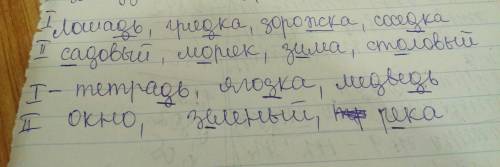 I лошадь, гредка, дорожка, соседка
II садовый, морек, зима, столовый
I - тетрадь, ягозка, медведь
II окно, зеленый, река